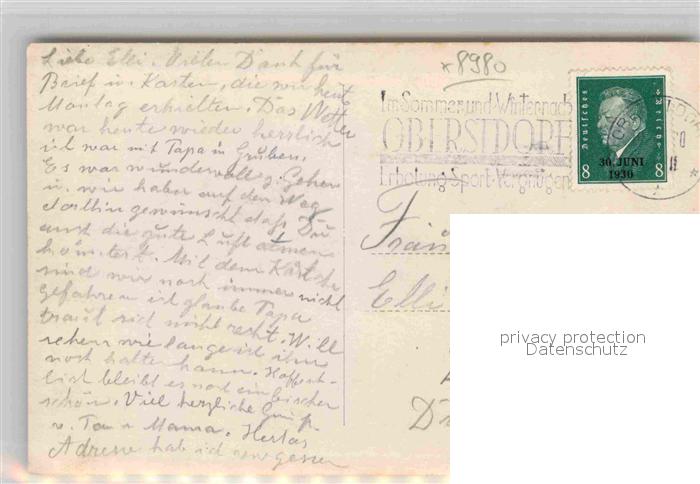 Liebe Elli. Vielen Dank für
Brief u. Karten, die wir heut
Montag erhielten. Das Wetter
war heute wieder herrlich
ich war mit Papa in Gruben.
Es war wundervoll z. Gehen
u. wir haben auf dem Weg
dorthin gewünscht daß Du
auch die gute Luft atmen
könntest. Mit dem Kärtche
sind wir noch immer nicht
gefahren ich glaube Papa
traut sich nicht recht. Will
sehen wie lange ich ihn
noch halten kann. Hoffent-
lich bleibt es noch ein bischen
schön. Viel herzliche
v. Mama.
Adresse hab ich vergessen
*8980
Im Sommer und Winter nach
OBERSTDORF
Erholung-Sport-Vergnügen
Deutsches Reich
8 8
30. JUNI
1930
Elli
privacy protection
Datenschutz